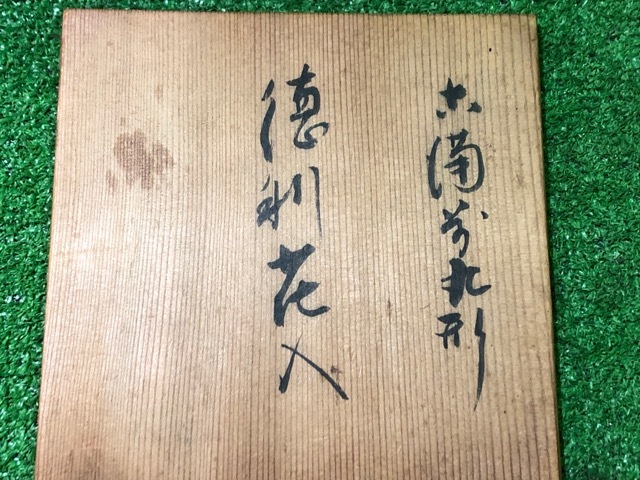 古備前丸形
徳利花入